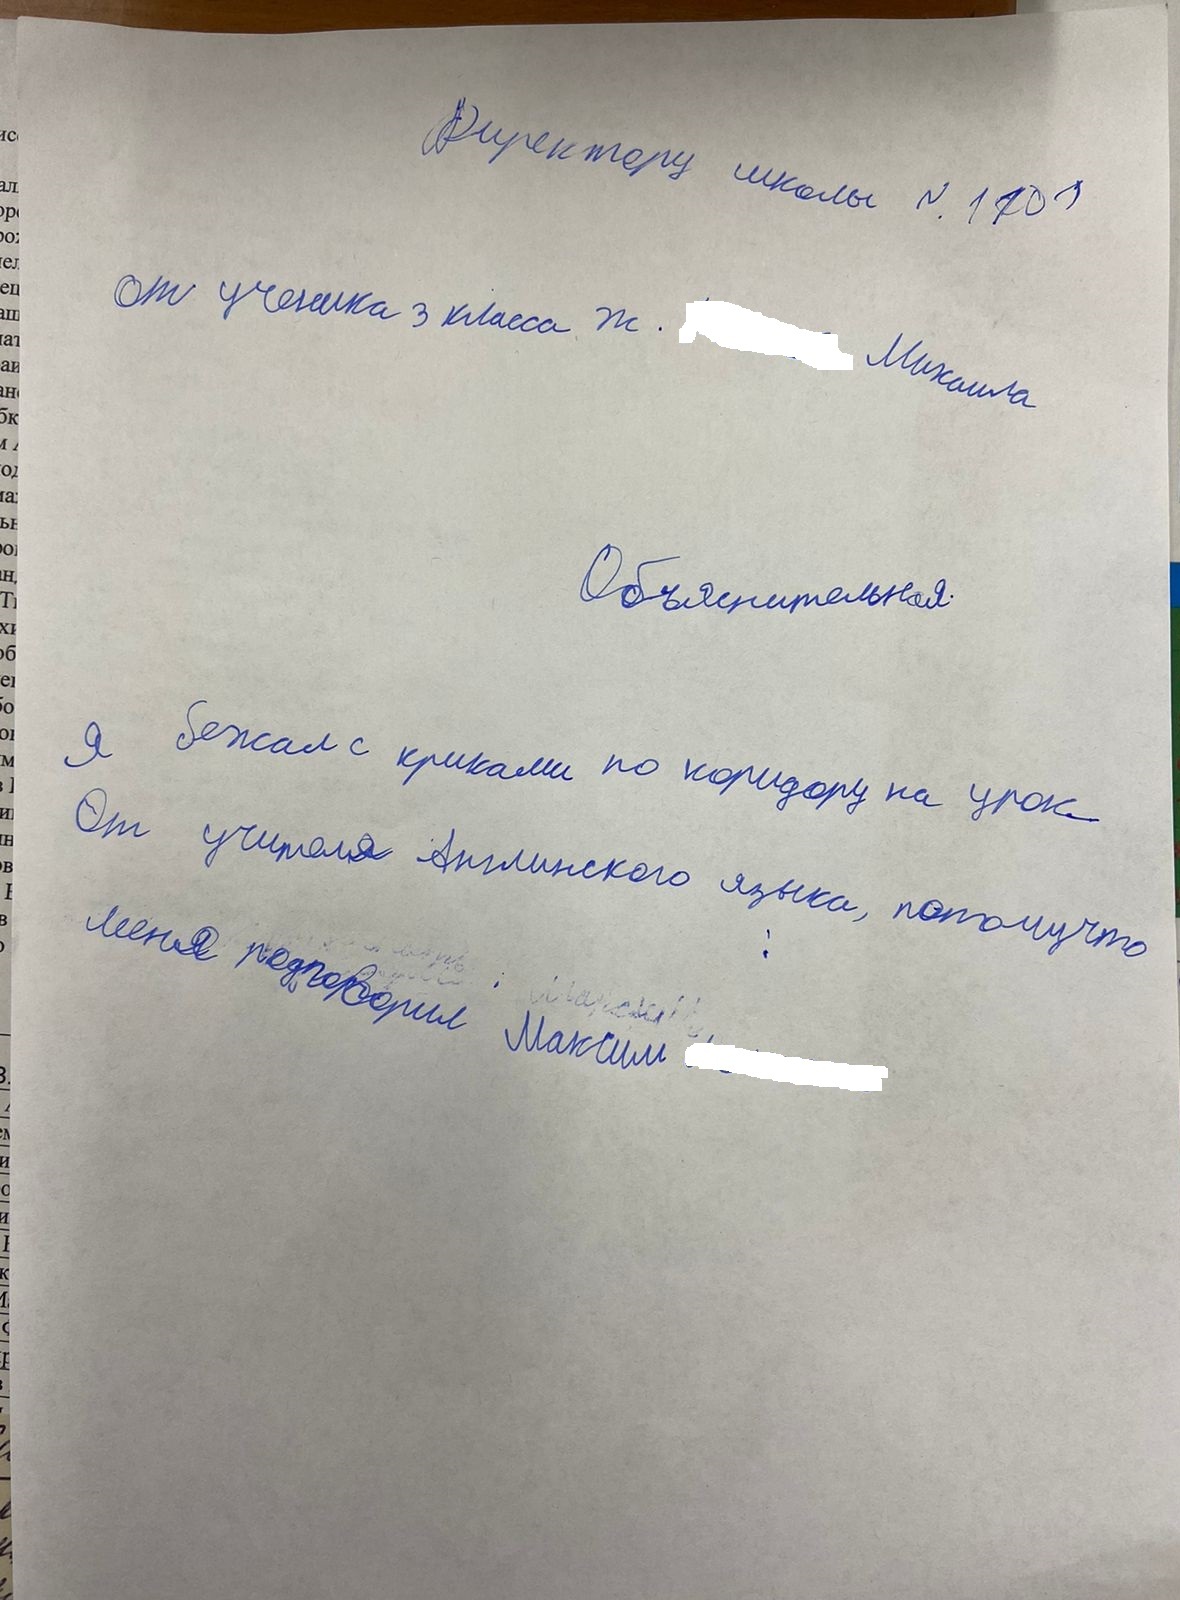 Директору школы N. 1701
От ученика 3 класса Ж. Михаила
Объяснительная.
Я бежал с криками по коридору на урок
От учителя Англинского языка, потомучто
меня подговорил Максим